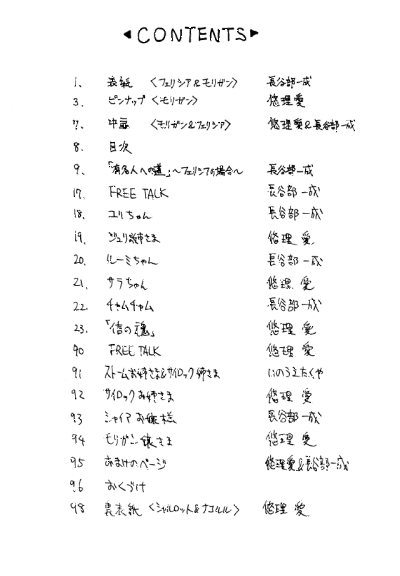 ◀ CONTENTS ▶
1. 表紙 〈フェリシア&モリガン〉 長谷部一成
3. ピンナップ〈モリガン〉 悠理愛
7. 中扉 〈モリガン&フェリシア〉 悠理愛&長谷部一成
8. 目次
9. 「有名人への道」〜フェリシアの場合〜 長谷部一成
17. FREE TALK 長谷部一成
18. ユリちゃん 長谷部一成
19. ジェリ姉さま 悠理 愛
20. ルーミちゃん 長谷部一成
21. サラちゃん 悠理 愛
22. チャムチャム 長谷部一成
23. 「信の魂」 悠理 愛
40 FREE TALK 悠理 愛
41 ストームお姉さま&サイロック姉さま にのうえたくや
42 サイロックお姉さま 悠理 愛
43 シャイアお嬢様 長谷部一成
44 モリガン嬢さま 悠理 愛
45 おまけのページ 悠理愛&長谷部一成
46 おくづけ
48 裏表紙 〈シャルロット&ナコルル〉 悠理 愛